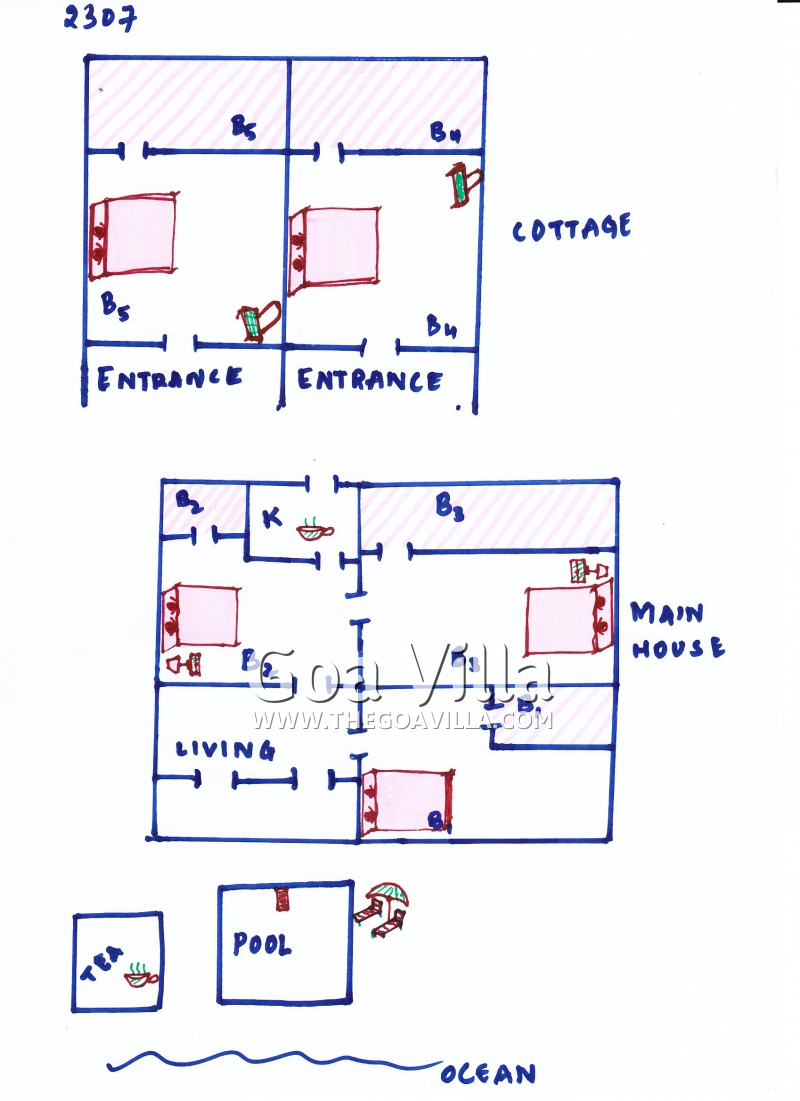 2307
B5
B4
COTTAGE
B5
B4
ENTRANCE
ENTRANCE
B2
K
B3
MAIN
HOUSE
B2
B3
Goa Villa
WWW.THEGOAVILLA.COM
B1
LIVING
B1
TEA
POOL
OCEAN